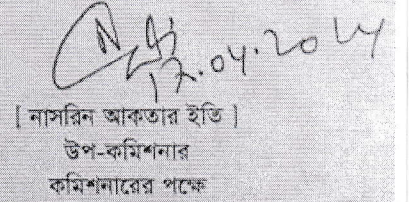 17.04.2024
[ নাসরিন আকতার ইতি ]
উপ-কমিশনার
কমিশনারের পক্ষে